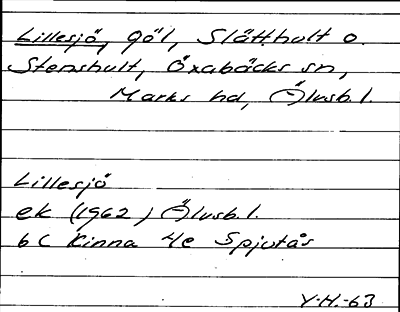 Lillesjö, göl, Slätthult o.
Stenshult, Öxabäcks sn,
Marks hd, Älvsb.l.
Lillesjö
ek (1962) Älvsb.l.
6C Kinna 4e Spjutås
Y.H.-63